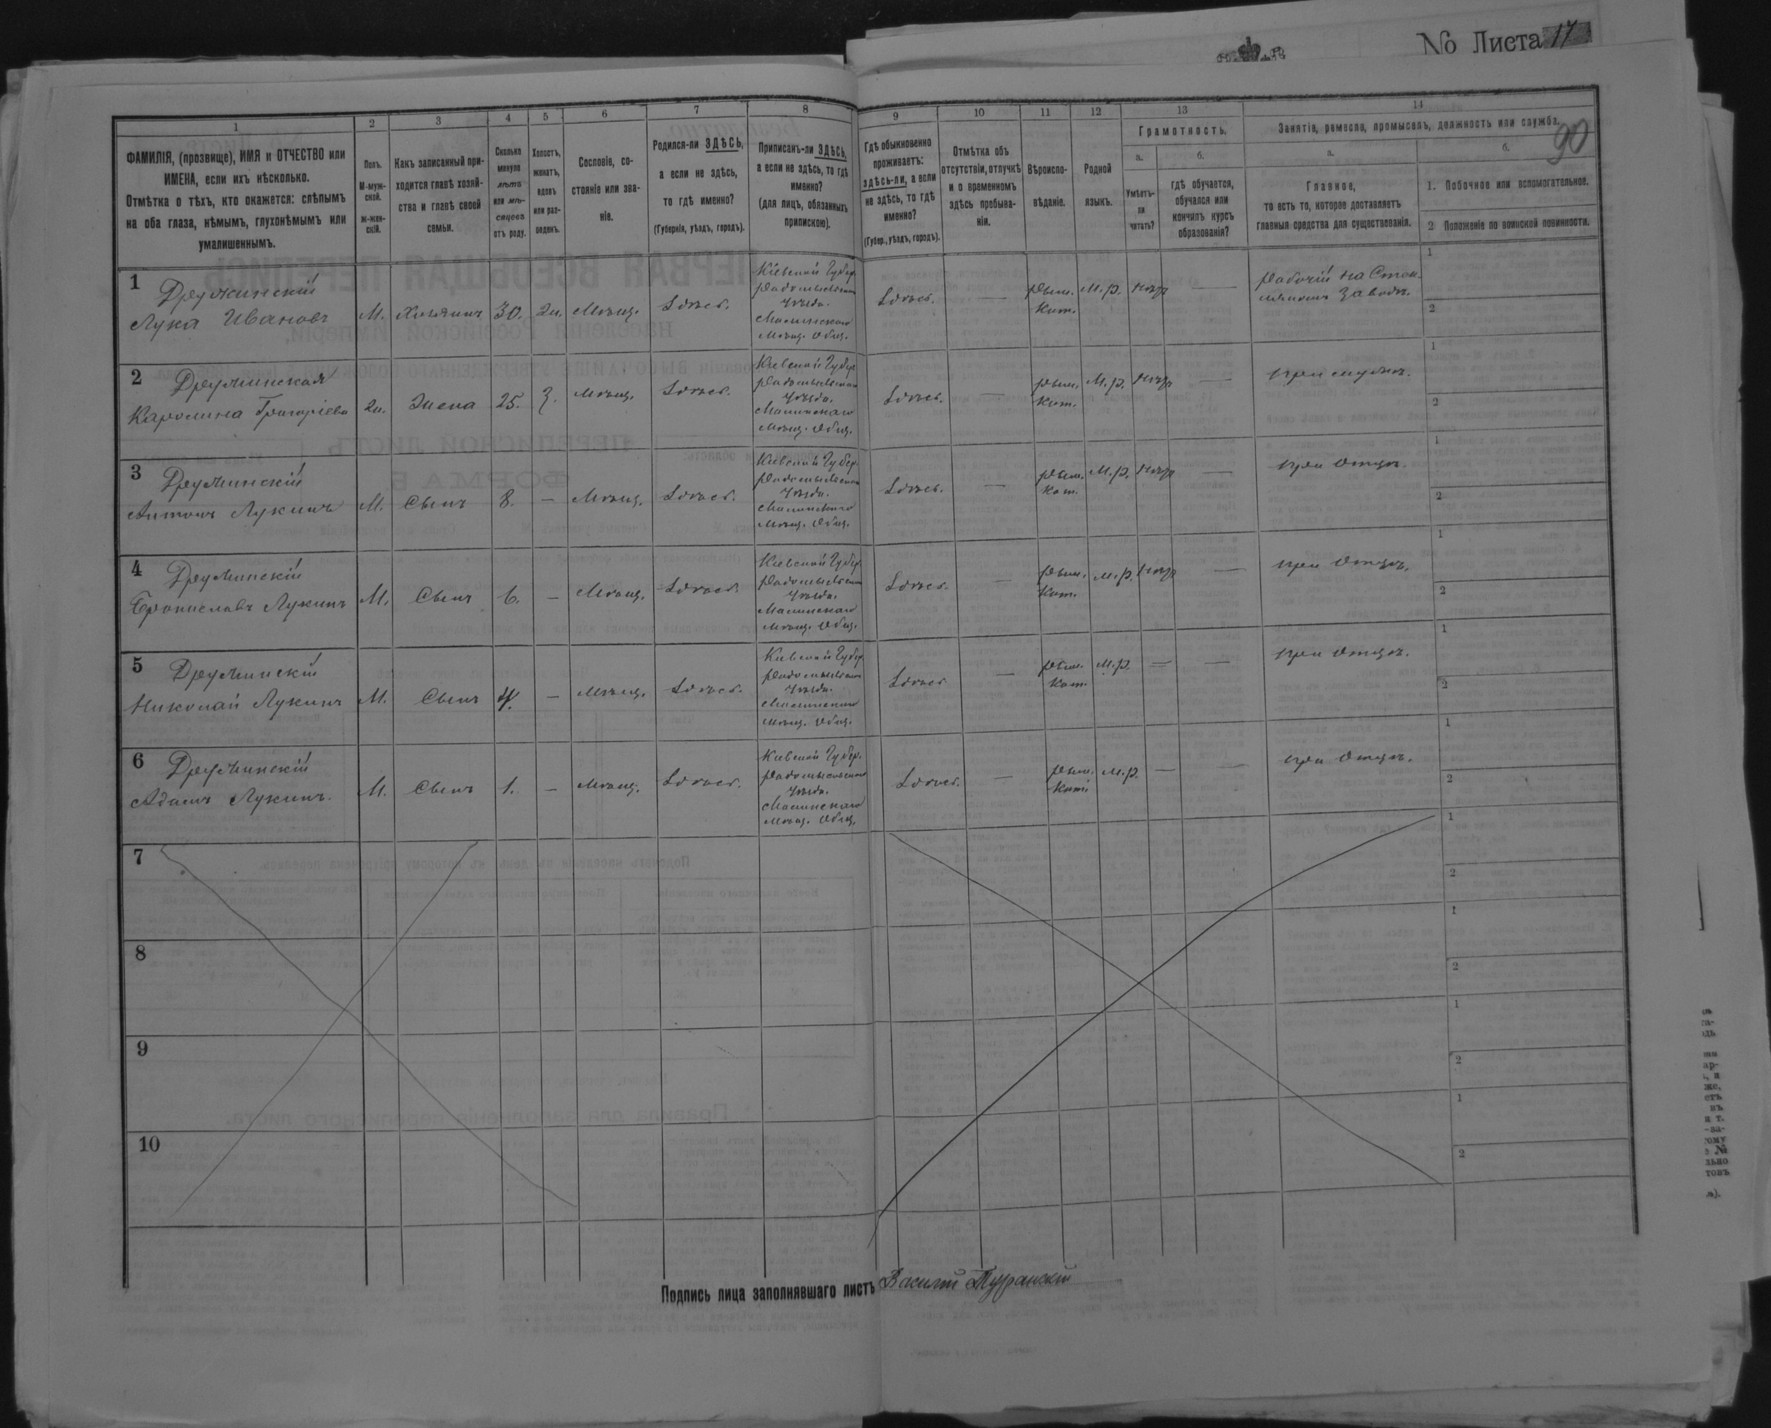 No Листа 17
90
1
2
3
4
5
6
7
8
9
10
11
12
13
14
ФАМИЛІЯ, (прозвище), ИМЯ и ОТЧЕСТВО или
ИМЕНА, если ихъ нѣсколько.
Отмѣтка о тѣхъ, кто окажется: слѣпымъ
на оба глаза, нѣмымъ, глухонѣмымъ или
умалишеннымъ.
Полъ.
М-муж-
ской.
ж-жен-
скій.
Какъ записанный при-
ходится главѣ хозяй-
ства и главѣ своей
семьи.
Сколько
минуло
лѣтъ
или мѣ-
сяцевъ
отъ роду.
Холостъ,
женатъ,
вдовъ
или раз-
веденъ.
Сословіе, со-
стояніе или зва-
ніе.
Родился-ли ЗДѢСЬ,
а если не здѣсь,
то гдѣ именно?
(Губернія, уѣздъ, городъ).
Приписанъ-ли ЗДѢСЬ,
а если не здѣсь, то гдѣ
именно?
(для лицъ, обязанныхъ
припискою).
Гдѣ обыкновенно
проживаетъ:
здѣсь-ли, а если
не здѣсь, то гдѣ
именно?
(Губер., уѣздъ, городъ).
Отмѣтка объ
отсутствіи, отлучкѣ
и о временномъ
здѣсь пребыва-
ніи.
Вѣроиспо-
вѣданіе.
Родной
языкъ.
Грамотность.
а.
б.
Умѣетъ-
ли
читать?
гдѣ обучается,
обучался или
кончилъ курсъ
образованія?
Занятіе, ремесло, промыселъ, должность или служба.
а.
б.
Главное,
то есть то, которое доставляетъ
главныя средства для существованія.
1. Побочное или вспомогательное.
2 Положеніе по воинской повинности.
1 Дружинскій
Лука Ивановъ
М.
Хозяинъ
30.
Ж.
Мѣщ.
Здѣсь.
Кіевской Губер.
Радомысльскаго
Уѣзда.
Малинскаго
Мѣщ. Общ.
Здѣсь.
—
Рым.
Кат.
М.р.
—
Рабочій на Стек-
заводѣ.
1
2
2 Дружинская
Каролина Григоріева
Ж.
Жена
25.
З.
Мѣщ.
Здѣсь.
Кіевской Губер.
Радомысльскаго
Уѣзда.
Малинскаго
Мѣщ. Общ.
Здѣсь.
Рым.
Кат.
М.р.
—
При мужѣ.
1
2
3 Дружинскій
Антонъ Лукинъ
М.
Сынъ
8.
—
Мѣщ.
Здѣсь.
Кіевской Губер.
Радомысльскаго
Уѣзда.
Малинскаго
Мѣщ. Общ.
Здѣсь.
—
Рым.
Кат.
М.р.
—
при Отцѣ.
1
2
4 Дружинскій
Брониславъ Лукинъ
М.
Сынъ
6.
—
Мѣщ.
Здѣсь.
Кіевской Губер.
Радомысльскаго
Уѣзда.
Малинскаго
Мѣщ. Общ.
Здѣсь.
—
Рым.
Кат.
М.р.
—
при Отцѣ.
1
2
5 Дружинскій
Николай Лукинъ
М.
Сынъ
4.
—
Мѣщ.
Здѣсь.
Кіевской Губер.
Радомысльскаго
Уѣзда.
Малинскаго
Мѣщ. Общ.
Здѣсь.
—
Рым.
Кат.
М.р.
—
—
при Отцѣ.
1
2
6 Дружинскій
Адамъ Лукинъ.
М.
Сынъ
1.
—
Мѣщ.
Здѣсь.
Кіевской Губер.
Радомысльскаго
Уѣзда.
Малинскаго
Мѣщ. Общ.
Здѣсь.
—
Рым.
Кат.
М.р.
—
—
при Отцѣ.
1
2
7
1
2
8
1
2
9
1
2
10
1
2
Подпись лица заполнявшаго листъ Василій